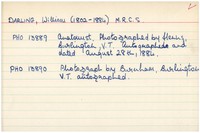 DARLING, William (1802-1884) M.R.C.S.
PHO 13889 Anatomist, Photographed by Henry,
Burlington, V.T. Autographed and
dated August 28th, 1884.
PHO 13890 Photograph by Burnham, Burlington
V.T. autographed.